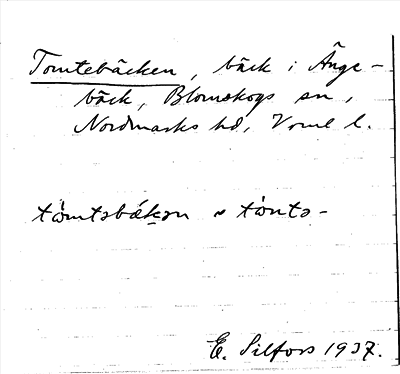 Tomtebäcken, bäck i Änge-
bäck, Blomskogs sn,
Nordmarks hd, Vrml l.
tòmtəbákən ~ tòntə-
E. Silfors 1937.